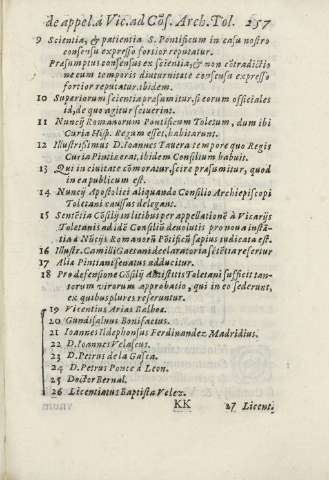 de appel. à Vic. ad Cōs. Arch. Tol. 257
9 Scientia, & patientia S. Pontificum in casu nostro
consensu expresso fortior reputatur.
Præsumptus consensus ex scientia, & non cōtradictio
ne cum temporis diuturnitate consensu expresso
fortior reputatur. ibidem.
10 Superiorum scientia præsumitur. si eorum officiales
id, de quo agitur scuerint.
11 Nuncij Romanorum Pontificum Toletum, dum ibi
Curia Hisp. Regum esset, habitarunt.
12 Illustrissimus D. Ioannes Tauera tempore quo Regis
Curia Pintiæ erat, ibidem Consilium habuit.
13 Qui in ciuitate cōmoratur, scire præsumitur, quod
in ea publicum est.
14 Nuncij Apostolici aliquando Consilio Archiepiscopi
Toletani caussas delegant.
15 Sentētia Cōsilij in litibus per appellationē à Vicarijs
Toletanis ad idē Consiliū deuolutis pro noua instā-
tia à Nūcijs Romanorū Pōtificū sæpius iudicata est.
16 Illustr. Camilli Gaetani declaratoria sētētia refertur
17 Alia Pintiani senatus adducitur.
18 Pro defensione Cōsilij Antistitis Toletani sufficit tan-
torum virorum approbatio, qui in eo sederunt,
ex quibus plures referuntur.
19 Vicentius Arias Balboa.
20 Gundisaluus Bonifacius.
21 Ioannes Ildephonsus Ferdinandez Madridius.
22 D. Ioannes Velascus.
23 D. Petrus de la Gasca.
24 D. Petrus Ponce à Leon.
25 Doctor Bernal.
26 Licentiatus Baptista Velez.
KK 27 Licenti